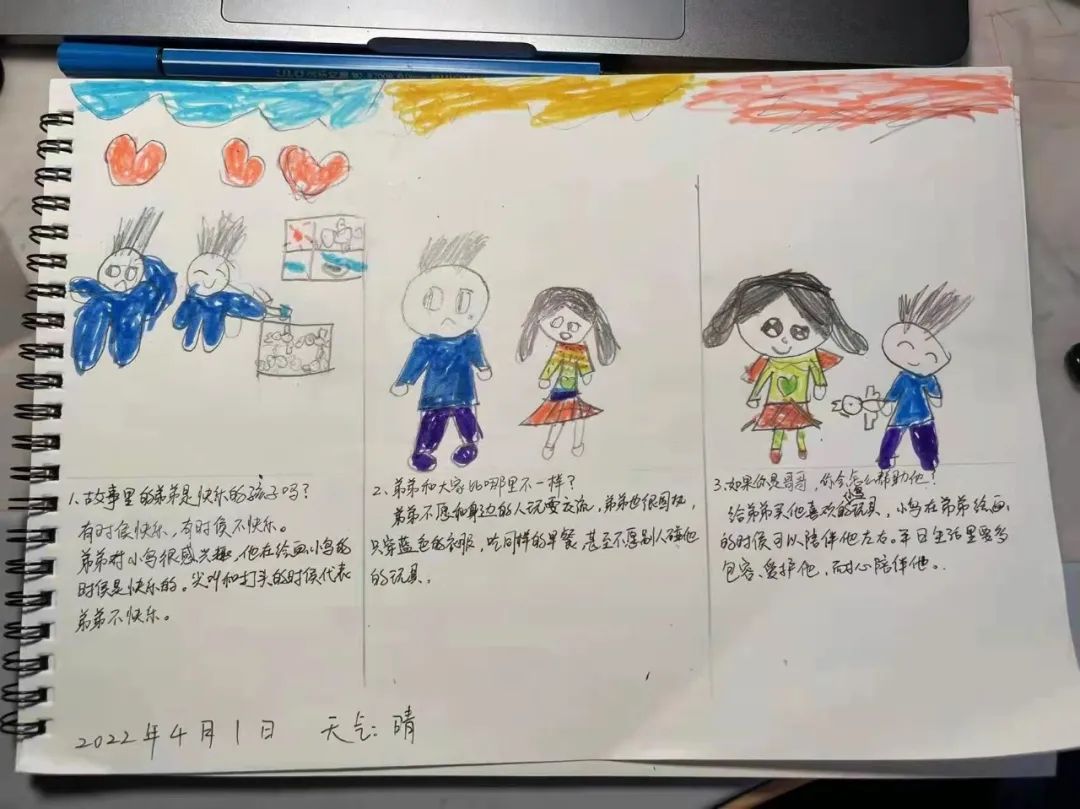 1.故事里的弟弟是快乐的孩子吗？
有时候快乐，有时候不快乐。
弟弟对小鸟很感兴趣，他在绘画小鸟的
时候是快乐的。尖叫和打头的时候代表
弟弟不快乐。
2.弟弟和大家比哪里不一样？
弟弟不愿和身边的人玩耍交流，弟弟也很固执，
只穿蓝色的衣服，吃同样的早餐，甚至不愿别人碰他
的玩具。
3.如果你是哥哥，你会怎么帮助他？
给弟弟买他喜欢的玩具，小鸟在弟弟绘画
的时候可以陪伴他左右。平日生活里要多
包容、爱护他，耐心陪伴他。
2022年4月1日 天气：晴